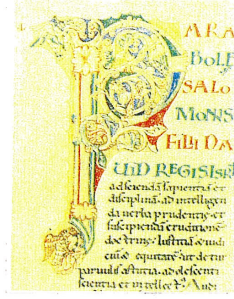 PARA
BOLE
SALO
MONIS
FILII DA
UID REGIS ISR
ad sciendā sapientiā et
disciplinā. ad intelligen
da uerba prudentie. et
suscipiendā eruditionē
doctrine. Iustitiā et iudi
ciū et equitatē. ut detur
paruulis astutia. adolescenti
scientia et intellect'. Audi